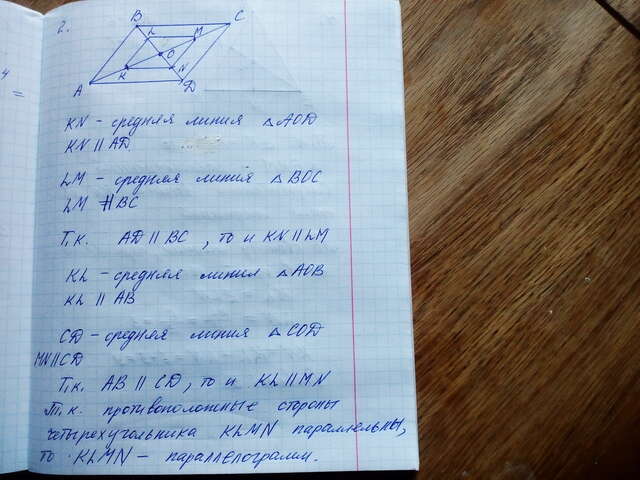 2.
B C
L M
O
K N
A D
4
=
KN - средняя линия △AOD
KN || AD
LM - средняя линия △BOC
LM || BC
Т.к. AD || BC, то и KN || LM
KL - средняя линия △AOB
KL || AB
CD - средняя линия △COD
MN || CD
Т.к. AB || CD, то и KL || MN
Т.к. противоположные стороны
четырехугольника KLMN параллельны,
то KLMN - параллелограмм.